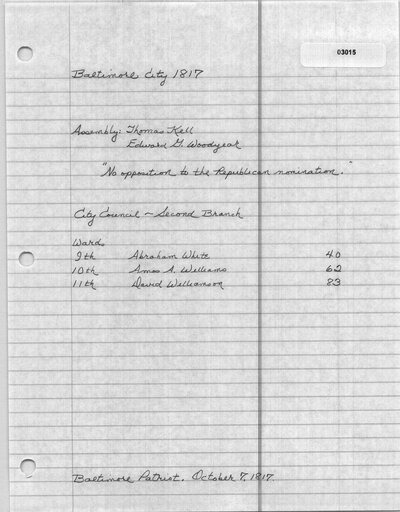 03015
Baltimore City 1817
Assembly: Thomas Kell
Edward G. Woodyear
"No opposition to the Republican nomination."
City Council ~ Second Branch
Ward
9th Abraham White 40
10th Amos A. Williams 62
11th David Williamson 83
Baltimore Patriot. October 7, 1817.